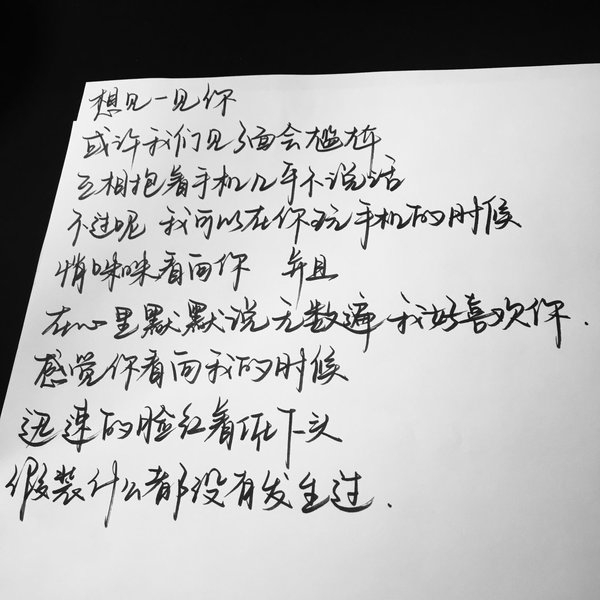 想见一见你
或许我们见了面会尴尬
互相抱着手机几乎不说话
不过呢 我可以在你玩手机的时候
悄咪咪看向你 并且
在心里默默说无数遍 我好喜欢你.
感觉你看向我的时候
迅速的脸红着低下头
假装什么都没有发生过.